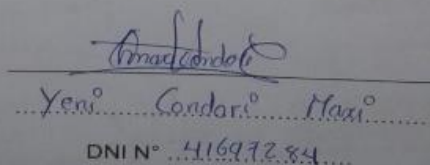 Yeni Condori Maxi
DNI N° 41697284